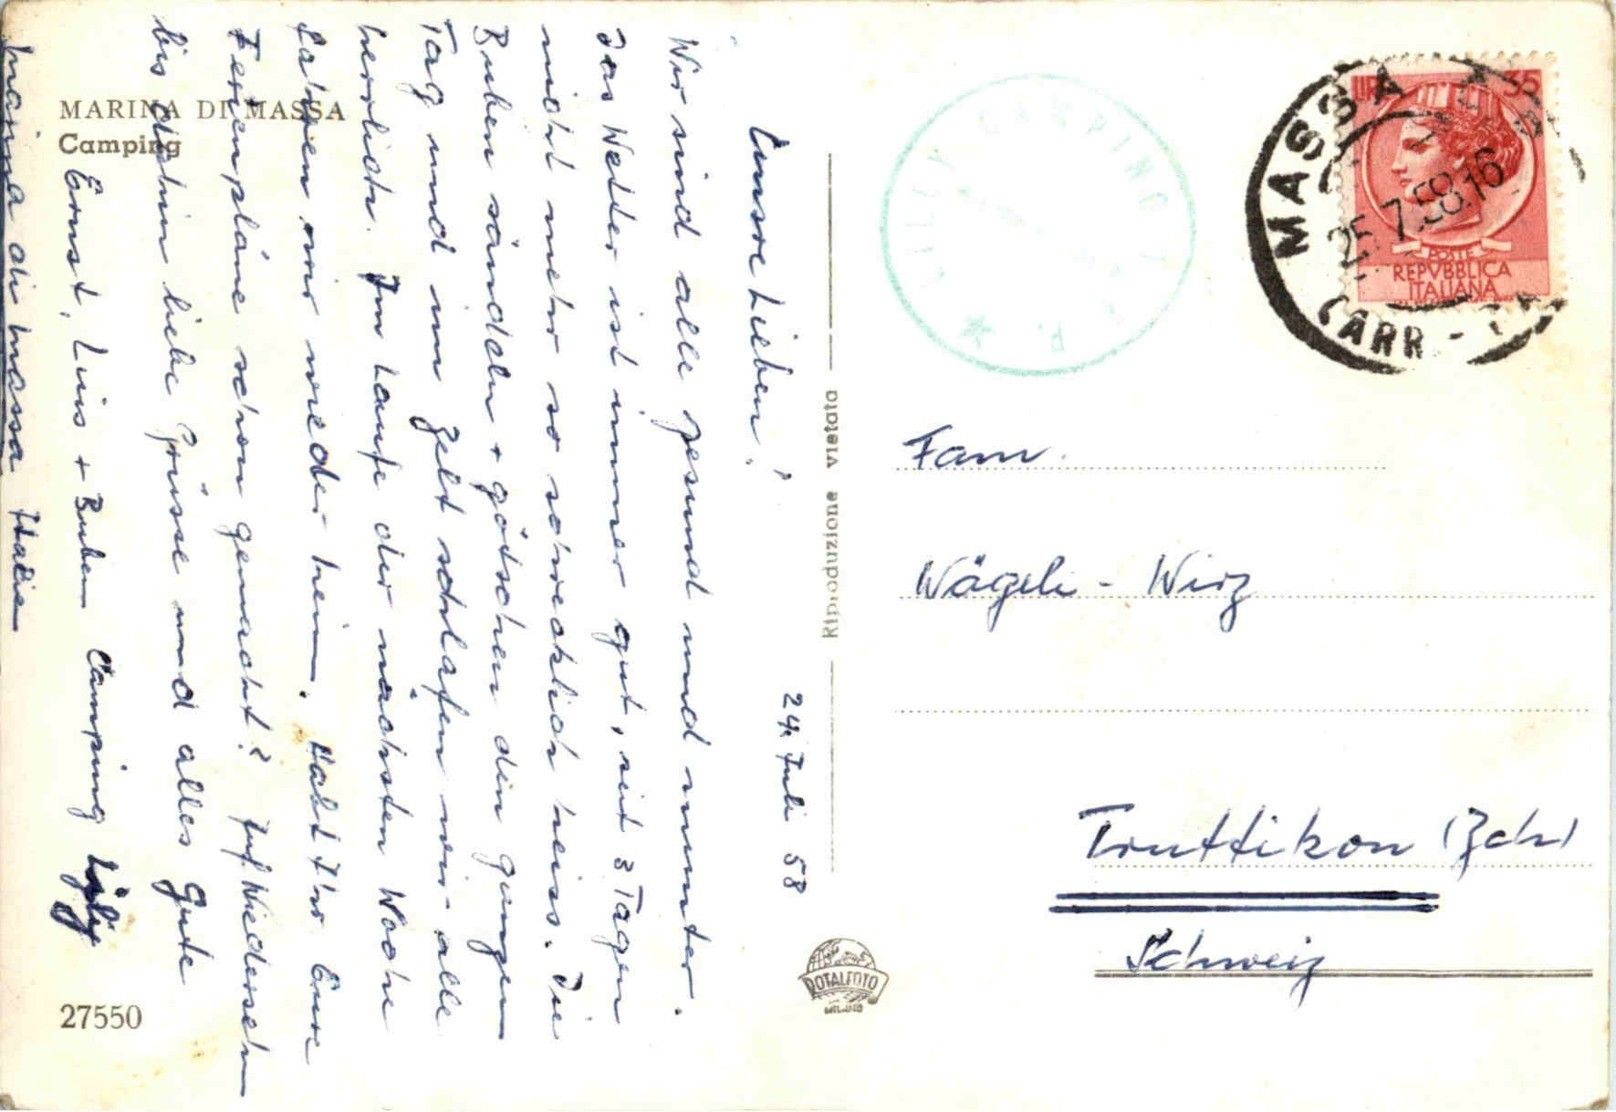 MARINA DI MASSA
Camping
24. Juli 58
Unsere Lieben!
Wir sind alle gesund und munter.
Das Wetter ist immer gut, seit 3 Tagen
nicht mehr so schrecklich heiss. Die
Buben sändeln + götschen den ganzen
Tag und im Zelt schlafen wir alle
herrlich. Im Laufe der nächsten Woche
fahren wir wieder heim. Habt Ihr Eure
Ferienpläne schon gemacht? Auf Wiedersehn
bis dahin liebe Grüsse und alles Gute
Ernst, Luis + Buben Camping Lily
marina di massa Italien
27550
Riproduzione vietata
ROTALFOTO
MILANO
LILLY CAMPING
MASSA
CARR
25.7.58.16
LIRE 35
POSTE
REPVBBLICA
ITALIANA
Fam.
Wägeli - Wirz
Truttikon (Zch)
Schweiz